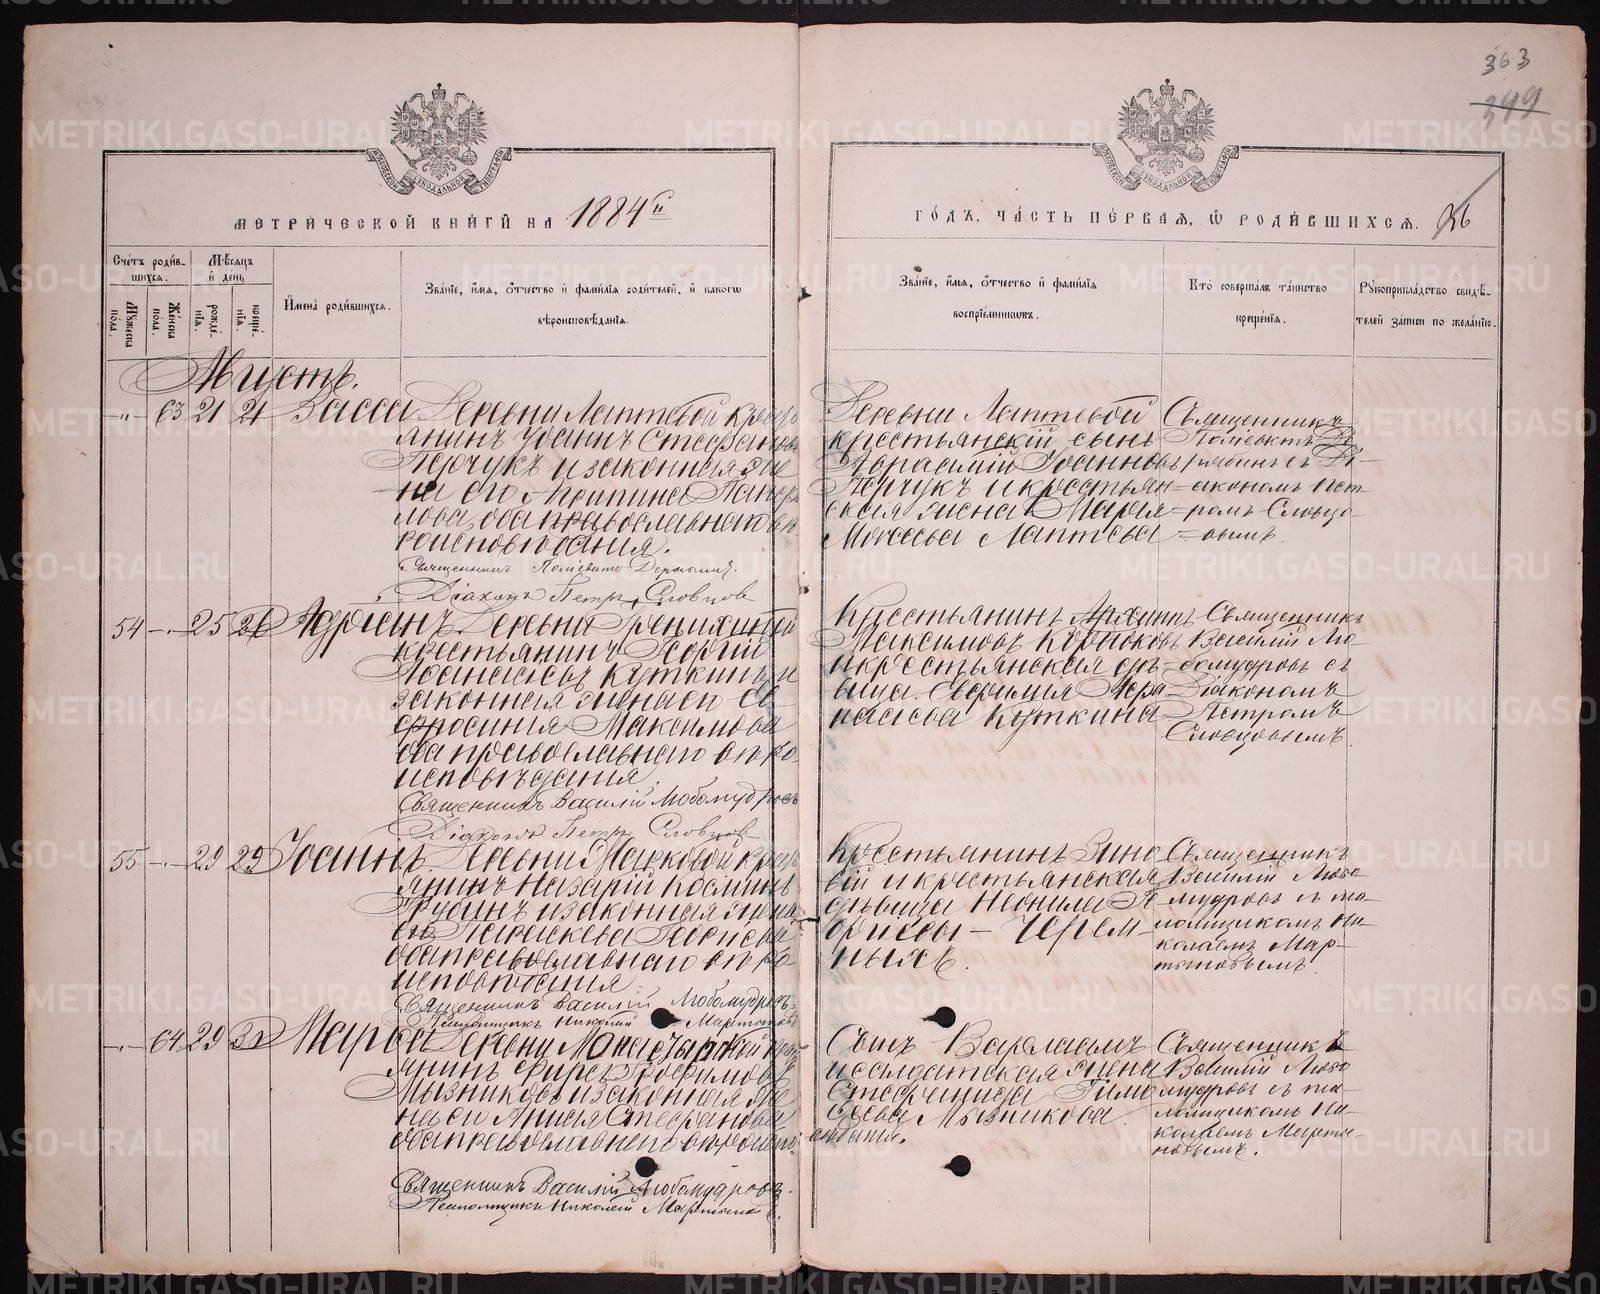 363
399
МЕТРИ́ЧЕСКОЙ КНИ́ГИ НА 1884 й
ГО́ДЪ, ЧА́СТЬ ПЕ́РВАЯ, Ѡ РОДИ́ВШИХСЯ.
Счётъ роди́в-
шихся.
Мѣ́сяцъ
и́ день
Мꙋ́жеска по́ла.
Же́нска по́ла.
рожде́-нїя.
креще́-нїя.
И҆мена̀ роди́вшихся.
Зва́нїе, и҆́мя, ѻ҆́тчество и҆ фами́лїя роди́телей, и҆ како́гѡ
вѣроисповѣ́данїя.
Зва́нїе, и҆́мя, ѻ҆́тчество и҆ фами́лїя
воспрїе́мниковъ.
Кто̀ соверша́лъ та́инство
креще́нїя.
Рꙋкоприкла́дство свидѣ́-
телей за́писи по жела́нїю.
Августъ.
" 63 21 21 Васса
Деревни Лаптевой кресть
янинъ Іоаннъ Стефановъ
Перчукъ и законная же
на его
оба православнаго вѣ
роисповѣданія.
Священникъ
Діаконъ Петръ Словцов
Деревни Лаптевой
крестьянскій сынъ
Авраамій Іоанновъ
Перчукъ и крестьян
ская жена Марія
Моисеева Лаптева
Священникъ
діакономъ Пет
ромъ Словцо
вымъ.
54 25 26 Адріанъ
Деревни
крестьянинъ Георгій
Аѳанасьевъ Куткинъ и
законная жена его Ев
фросинія Максимова
оба православнаго вѣро
исповѣданія.
Священникъ Василій Любомудровъ
Діаконъ Петръ Словцов
Крестьянинъ Архиппъ
Максимовъ Коротковъ
и крестьянская дѣ
вица Евфимія Аѳа
насьева Куткина
Священникъ
Василій Лю
бомудровъ съ
Діакономъ
Петромъ
Словцовымъ.
55 29 29 Іоаннъ
Деревни Марковой кресть
янинъ Назарій Косминъ
Трубинъ и законная жена
его Параскева Георгіева
оба православнаго вѣро
исповѣданія.
Священникъ Василій Любомудровъ
Псаломщикъ Николай Мартыновъ
Крестьянинъ Зино
вій и крестьянская
дѣвица Неонила
Борисовы Черем
ныхъ.
Священникъ
Василій Любо
мудровъ съ пса
ломщикомъ Ни
колаемъ Мар
тыновымъ.
64 29 Марѳа
Деревни
янинъ Фирсъ Трофимовъ
Мызниковъ и законная же
на его Анисія Стефанова
оба православнаго вѣроиспо
вѣданія.
Священникъ Василій Любомудровъ.
Псаломщикъ Николай Мартыновъ.
Сынъ Варлаамъ
и солдатская жена
Стефанида Тимо
ѳеева Мызникова
Священникъ
Василій Любо
мудровъ съ пса
ломщикомъ Ни
колаемъ Марты
новымъ.
METRIKI.GASO-URAL.RU